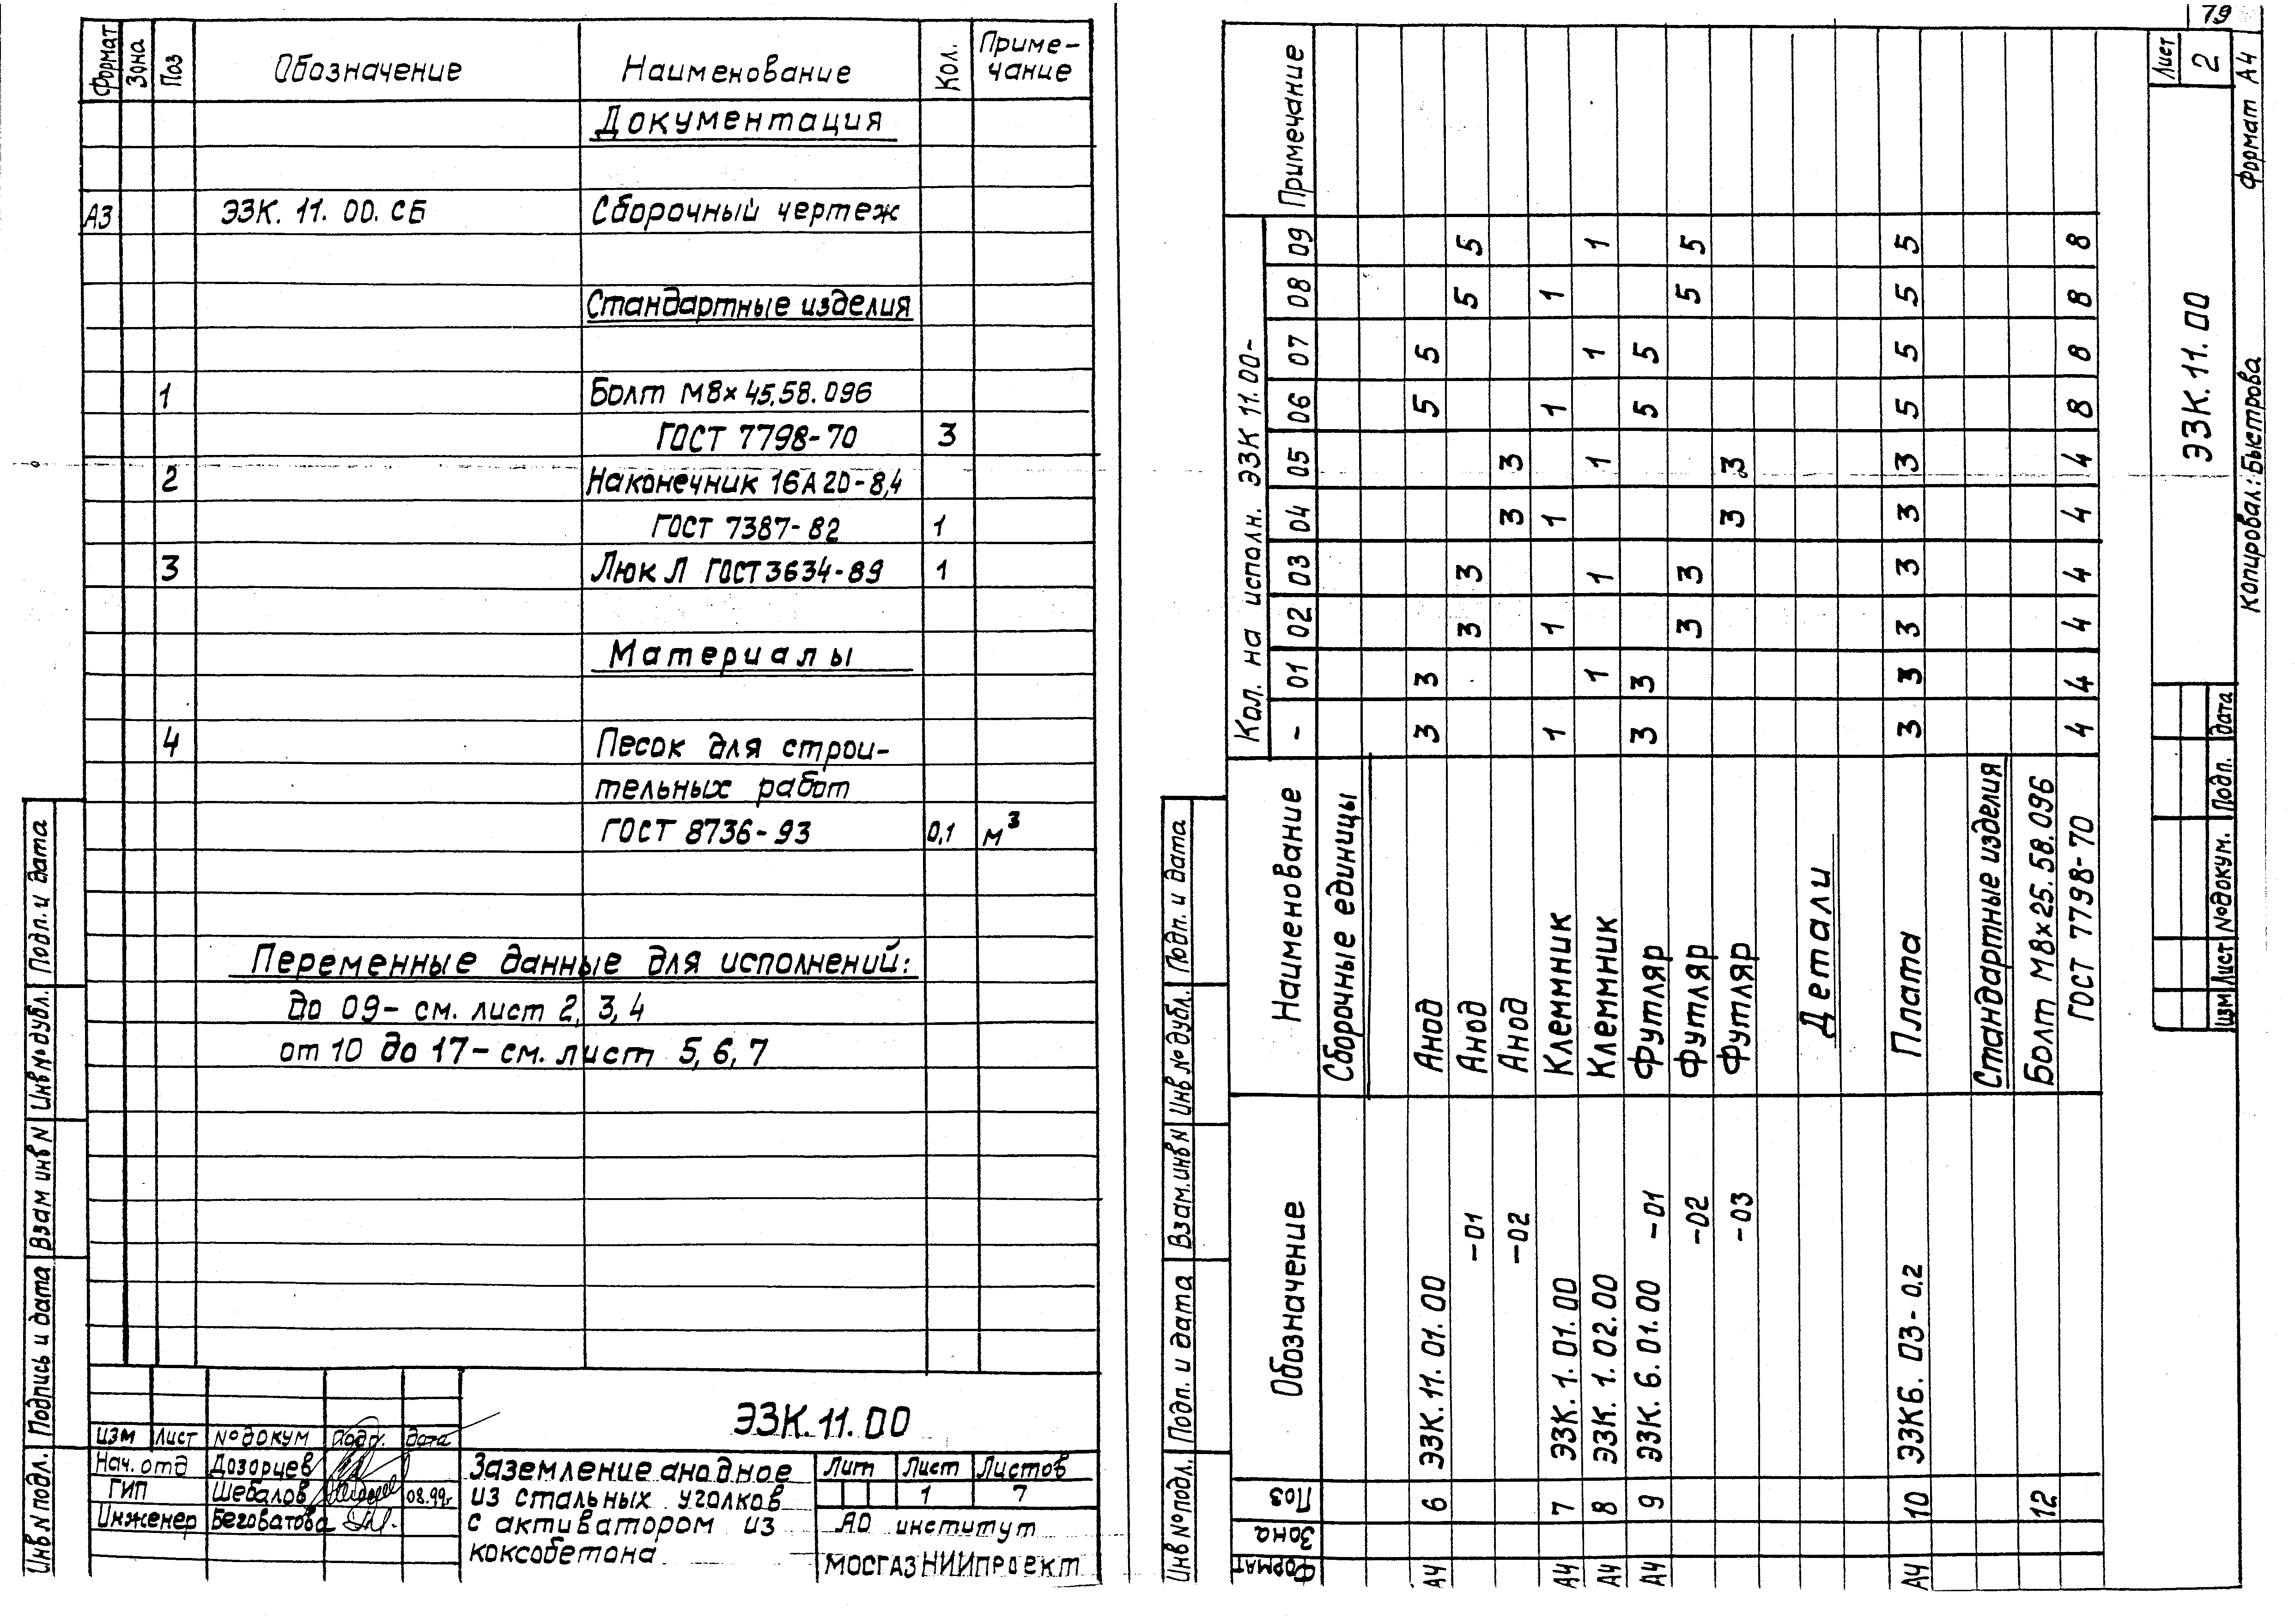 Формат Зона Поз Обозначение Наименование Кол. Приме-
чание
Документация
А3 ЭЗК. 11. 00. СБ Сборочный чертеж
Стандартные изделия
1 Болт М8х45.58.096
ГОСТ 7798-70 3
2 Наконечник 16А20-8,4
ГОСТ 7387-82 1
3 Люк Л ГОСТ 3634-89 1
Материалы
4 Песок для строи-
тельных работ
ГОСТ 8736-93 0,1 м³
Переменные данные для исполнений:
до 09- см. лист 2, 3, 4
от 10 до 17- см. лист 5, 6, 7
Инв № подл. Подпись и дата Взам инв N Инв № дубл. Подп. и дата
ЭЗК. 11. 00
изм лист № докум Подп. Дата
Нач. отд Дозорцев
ГИП Шебалов 08.99г
Инженер Беговатова
Заземление анодное
из стальных уголков
с активатором из
коксобетона
Лит Лист Листов
1 7
АО институт
МОСГАЗНИИПРОЕКТ
79
Формат Зона Поз Обозначение Наименование Кол. на исполн. ЭЗК 11.00- Примечание
- 01 02 03 04 05 06 07 08 09
Сборочные единицы
А4 6 ЭЗК. 11. 01. 00 Анод 3 3 5 5
-01 Анод 3 3 5 5
-02 Анод 3 3
А4 7 ЭЗК. 1. 01. 00 Клеммник 1 1 1 1 1
А4 8 ЭЗК. 1. 02. 00 Клеммник 1 1 1 1 1
А4 9 ЭЗК. 6. 01. 00 -01 Футляр 3 3 5 5
-02 Футляр 3 3 5 5
-03 Футляр 3 3
Детали
А4 10 ЭЗК6. 03- 0.2 Плата 3 3 3 3 3 3 5 5 5 5
Стандартные изделия
12 Болт М8х25.58.096
ГОСТ 7798-70 4 4 4 4 4 4 8 8 8 8
Инв № подл. Подп. и дата Взам. инв N Инв № дубл. Подп. и дата
изм Лист № докум. Подп. Дата
ЭЗК. 11. 00
Лист
2
Копировал: Быстрова Формат А4